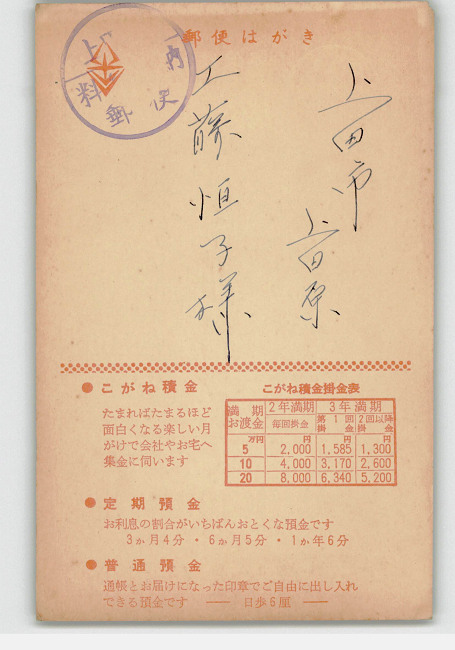 郵便はがき
上田市
上田原
工藤恒子様
上田
内
料
郵
便
● こがね積金
たまればたまるほど
面白くなる楽しい月
がけで会社やお宅へ
集金に伺います
こがね積金掛金表
満期お渡金 2年満期 3年満期
毎回掛金 第1回掛金 2回以降掛金
万円 円 円 円
5 2,000 1,585 1,300
10 4,000 3,170 2,600
20 8,000 6,340 5,200
● 定期預金
お利息の割合がいちばんおとくな預金です
3か月4分・6か月5分・1か年6分
● 普通預金
通帳とお届けになった印章でご自由に出し入れ
できる預金です —— 日歩6厘 ——